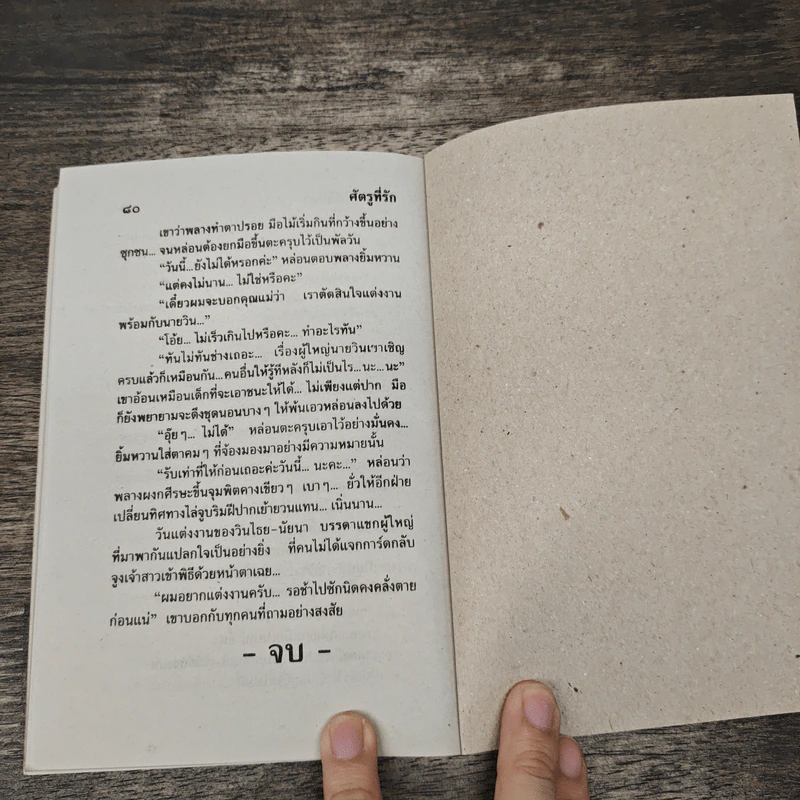 ๘๐
ศัตรูที่รัก
เขาว่าพลางทำตาปรอย มือไม้เริ่มกินที่กว้างขึ้นอย่าง
ซุกซน... จนหล่อนต้องยกมือขึ้นตะครุบไว้เป็นพัลวัน
“วันนี้...ยังไม่ได้หรอกค่ะ” หล่อนตอบพลางยิ้มหวาน
“แต่คงไม่นาน... ไม่ใช่หรือคะ”
“เดี๋ยวผมจะบอกคุณแม่ว่า เราตัดสินใจแต่งงาน
พร้อมกับนายวิน...”
“โอ้ย... ไม่เร็วเกินไปหรือคะ... ทำอะไรทัน”
“ทันไม่ทันช่างเถอะ... เรื่องผู้ใหญ่นายวินเขาเชิญ
ครบแล้วก็เหมือนกัน...คนอื่นให้รู้ทีหลังก็ไม่เป็นไร...นะ...นะ”
เขาอ้อนเหมือนเด็กที่จะเอาชนะให้ได้... ไม่เพียงแต่ปาก มือ
ก็ยังพยายามจะดึงชุดนอนบางๆ ให้พ้นเอวหล่อนลงไปด้วย
“อุ๊ยๆ... ไม่ได้” หล่อนตะครุบเอาไว้อย่างมั่นคง...
ยิ้มหวานใส่ตาคมๆ ที่จ้องมองมาอย่างมีความหมายนั้น
“รับเท่าที่ให้ก่อนเถอะค่ะวันนี้... นะคะ...” หล่อนว่า
พลางผงกศีรษะขึ้นจุมพิตคางเขียวๆ เบาๆ... ยั่วให้อีกฝ่าย
เปลี่ยนทิศทางไล่จูบริมฝีปากเย้ายวนแทน... เนิ่นนาน...
วันแต่งงานของวินไธย-นัยนา บรรดาแขกผู้ใหญ่
ที่มาพากันแปลกใจเป็นอย่างยิ่ง ที่คนไม่ได้แจกการ์ดกลับ
จูงเจ้าสาวเข้าพิธีด้วยหน้าตาเฉย...
“ผมอยากแต่งงานครับ... รอช้าไปซักนิดคงคลั่งตาย
ก่อนแน่” เขาบอกกับทุกคนที่ถามอย่างสงสัย
- จบ -